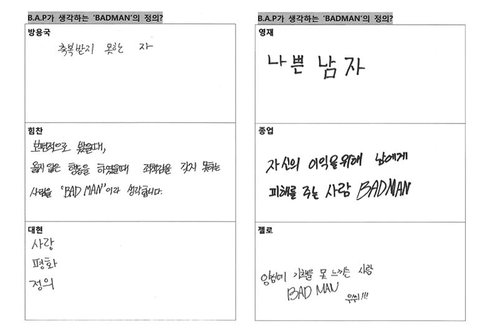 B.A.P가 생각하는 'BADMAN'의 정의?
방용국
축복받지 못하는 자
힘찬
보편적으로 봤을때,
옳지 않은 행동을 하였을때 죄책감을 갖지 못하는
사람을 'BAD MAN'이라 생각합니다.
대현
사랑
평화
정의
B.A.P가 생각하는 'BADMAN'의 정의?
영재
나쁜 남자
종업
자신의 이익을 위해 남에게
피해를 주는 사람 BADMAN
젤로
기분을 못 느끼는 사람
BAD MAN
우쒸!!!